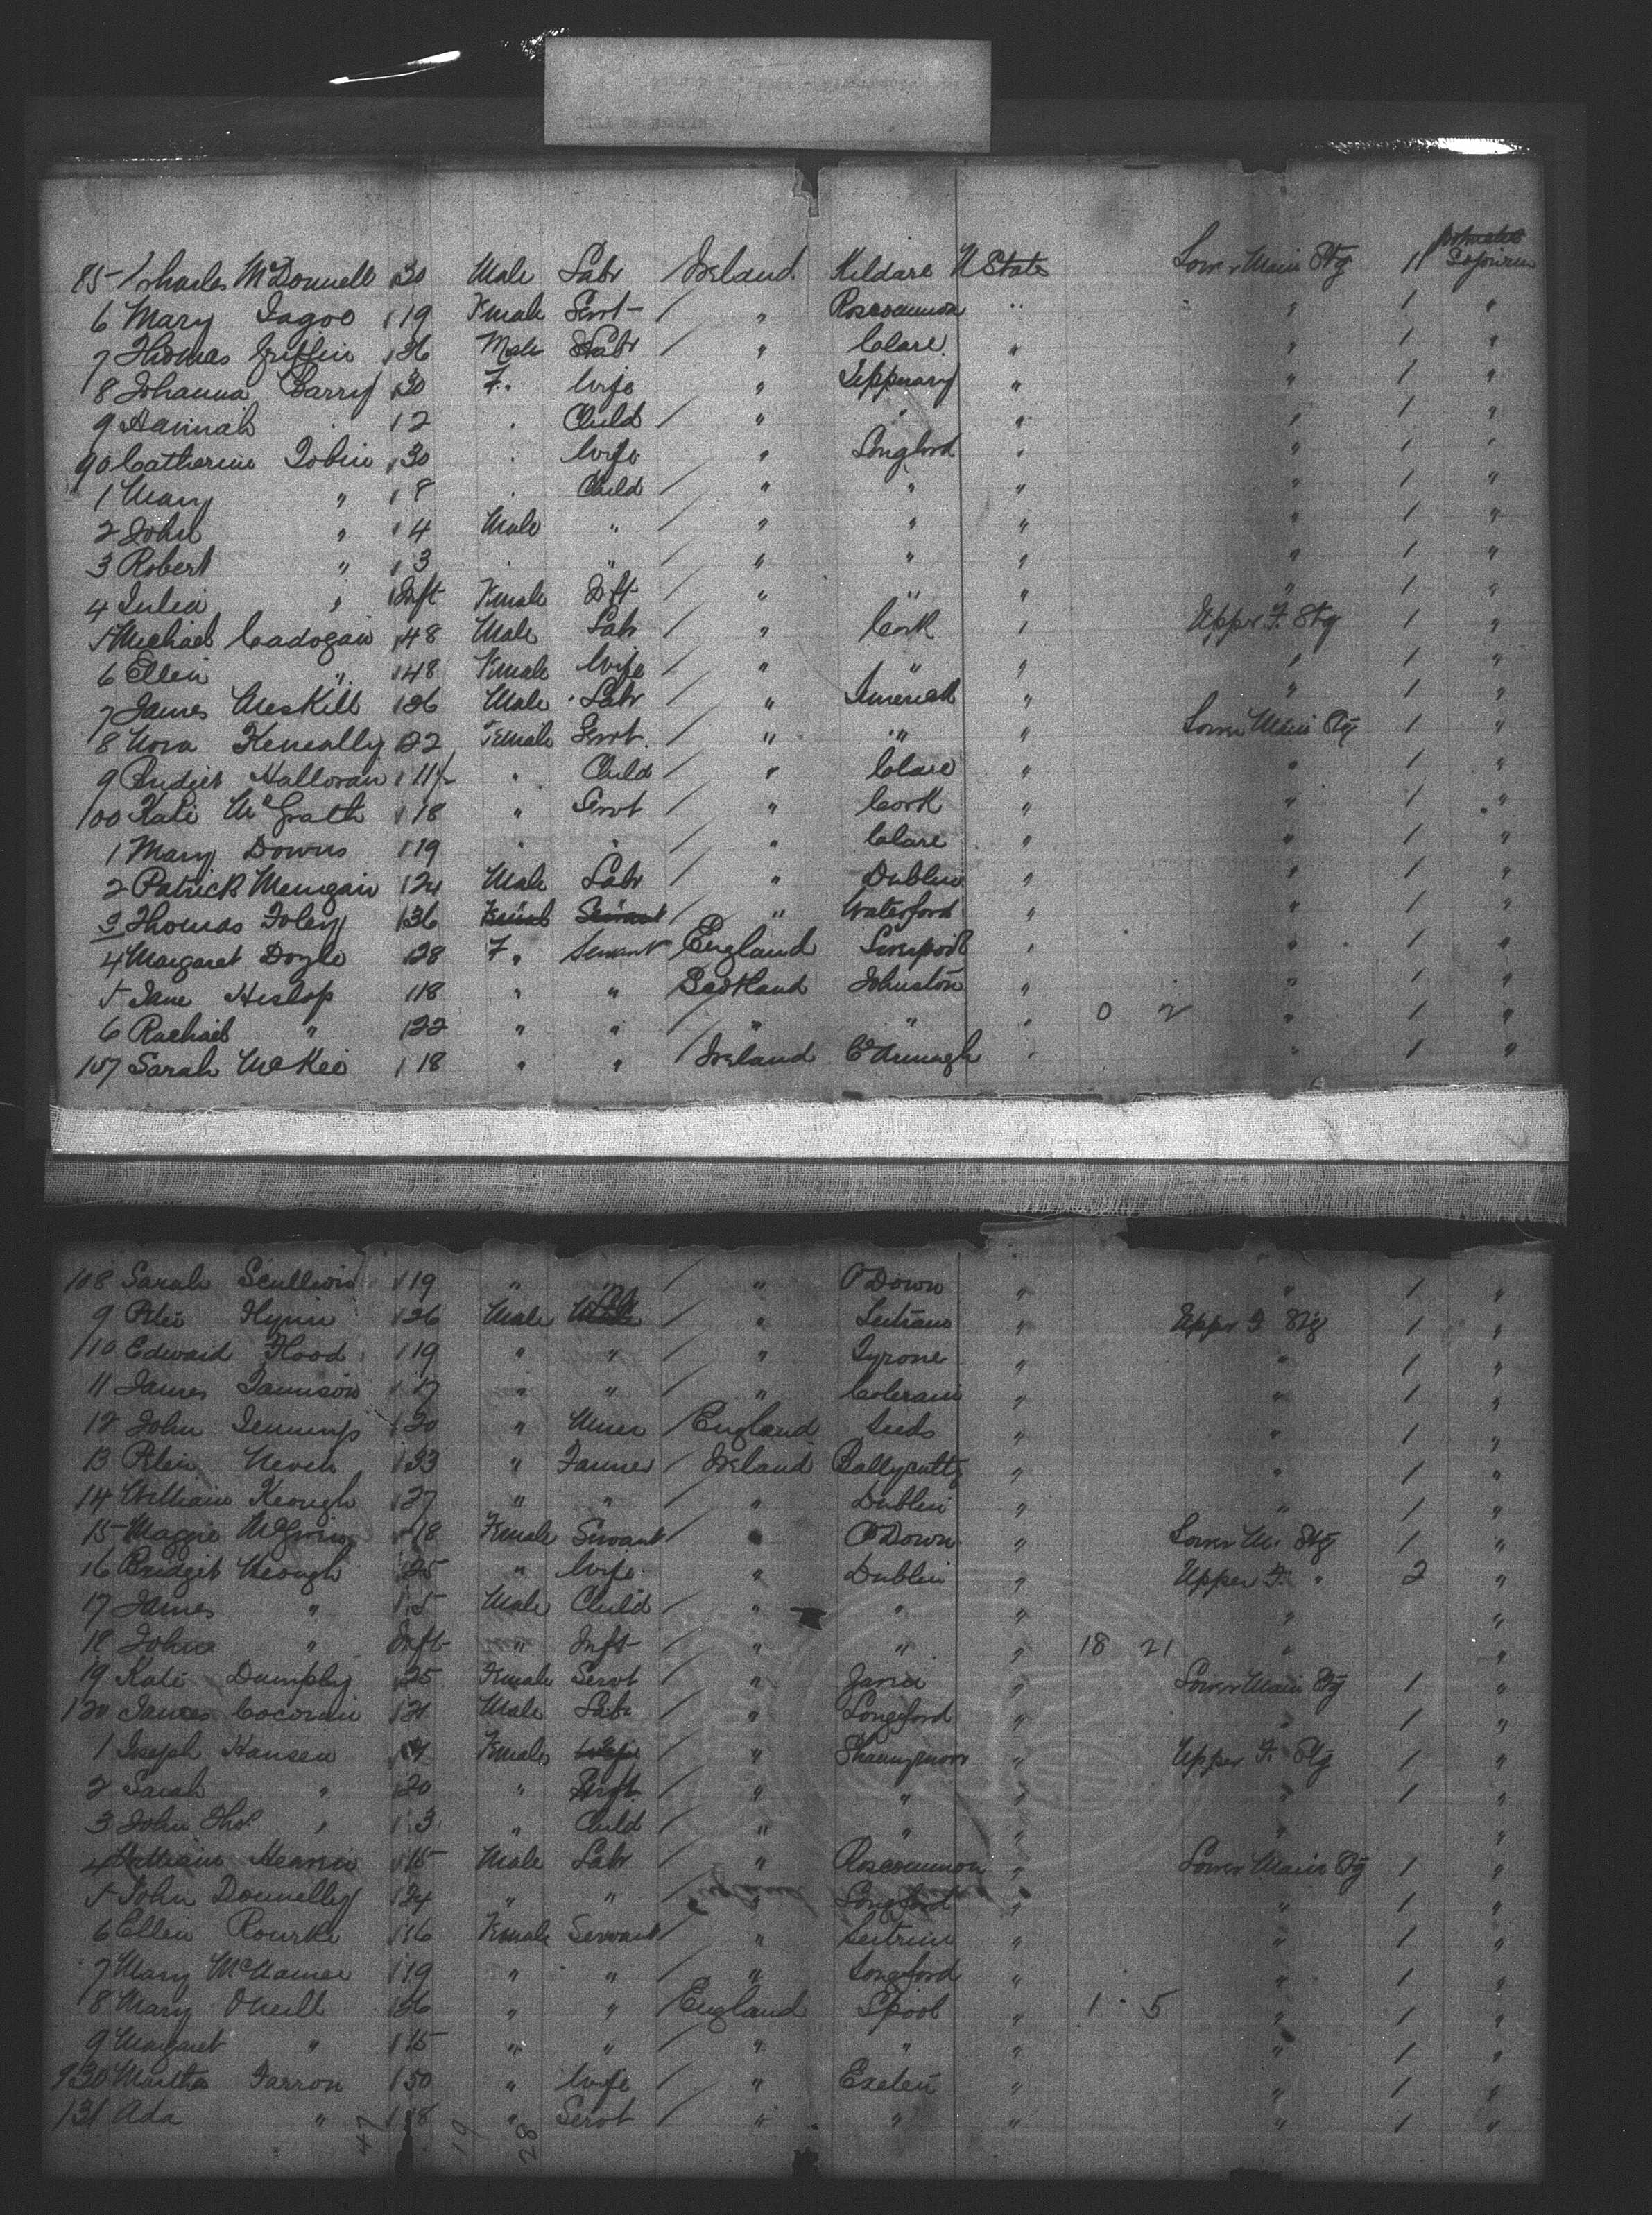 85 Charles McDonnell 30 Male Labr Ireland Kildare U State Lower Main Stg 11
6 Mary 19 Female Servt " Roscommon " " 1 "
7 Thomas Griffin 26 Male Labr " Clare " " 1 "
8 Johanna Barry 30 F. Wife " Tipperary " " 1 "
9 Hannah 12 " Child " " " " 1 "
90 Catherine Tobin 30 " Wife " Longford " " 1 "
1 Mary " 8 " Child " " " " 1 "
2 John " 4 Male " " " " " 1 "
3 Robert " 3 " " " " " " 1 "
4 Julia " Inft Female Inft " " " " 1 "
5 Michael Cadogan 48 Male Labr " Cork " Upper F. Stg 1 "
6 Ellen " 48 Female Wife " " " " 1 "
7 James Meskill 26 Male Labr " Limerick " " 1 "
8 Nora Keneally 22 Female Servt " " " Lower Main Stg 1 "
9 Bridget Halloran 11 " Child " Clare " " 1 "
100 Kate McGrath 18 " Servt " Cork " " 1 "
1 Mary Downs 19 " " " Clare " " 1 "
2 Patrick 24 Male Labr " Dublin " " 1 "
3 Thomas Foley 36 " Waterford " " 1 "
4 Margaret Doyle 28 F. Servant England Liverpool " " 1 "
5 Jane Hislop 18 " " Scotland Johnston " " 1 "
6 Rachael " 22 " " " " " 0 2 " 1 "
107 Sarah McKee 18 " " Ireland Co Armagh " " 1 "
108 Sarah Scullion 19 " " " Co Down " " 1 "
9 Peter Flynn 26 Male Labr " Leitrim " Upper F Stg 1 "
110 Edward Flood 19 " " " Tyrone " " 1 "
11 James Jamison 17 " " " Colerain " " 1 "
12 John Jennings 20 " Miner England Leeds " " 1 "
13 Peter Neven 33 " Farmer Ireland " " 1 "
14 William Keough 27 " " " Dublin " " 1 "
15 Maggie 18 Female Servant " Co Down " Lower M. Stg 1 "
16 Bridget Keough 25 " Wife " Dublin " Upper F. " 2 "
17 James " 5 Male Child " " " " "
18 John " Inft " Inft " " " 18 21 " "
19 Kate Dumphy 25 Female Servt " " Lower Main Stg 1 "
120 James Cocoran 21 Male Labr " Longford " " 1 "
1 Joseph Hansen Female " " Upper F. Stg 1 "
2 Sarah " 20 " " " " " 1 "
3 John Thos " 3 " Child " " " " "
4 William 15 Male Labr " Roscommon " Lower Main Stg 1 "
5 John Donnelly 24 " " " Longford " " 1 "
6 Ellen Rourke 16 Female Servant " Leitrim " " 1 "
7 Mary McNamee 19 " " " Longford " " 1 "
8 Mary ONeill 26 " " England Lpool " 1 5 " 1 "
9 Margaret " 15 " " " " " " 1 "
130 Martha Farron 50 " Wife " Exeter " " 1 "
131 Ada " 18 " Servt " " " " 1 "
47 19 28